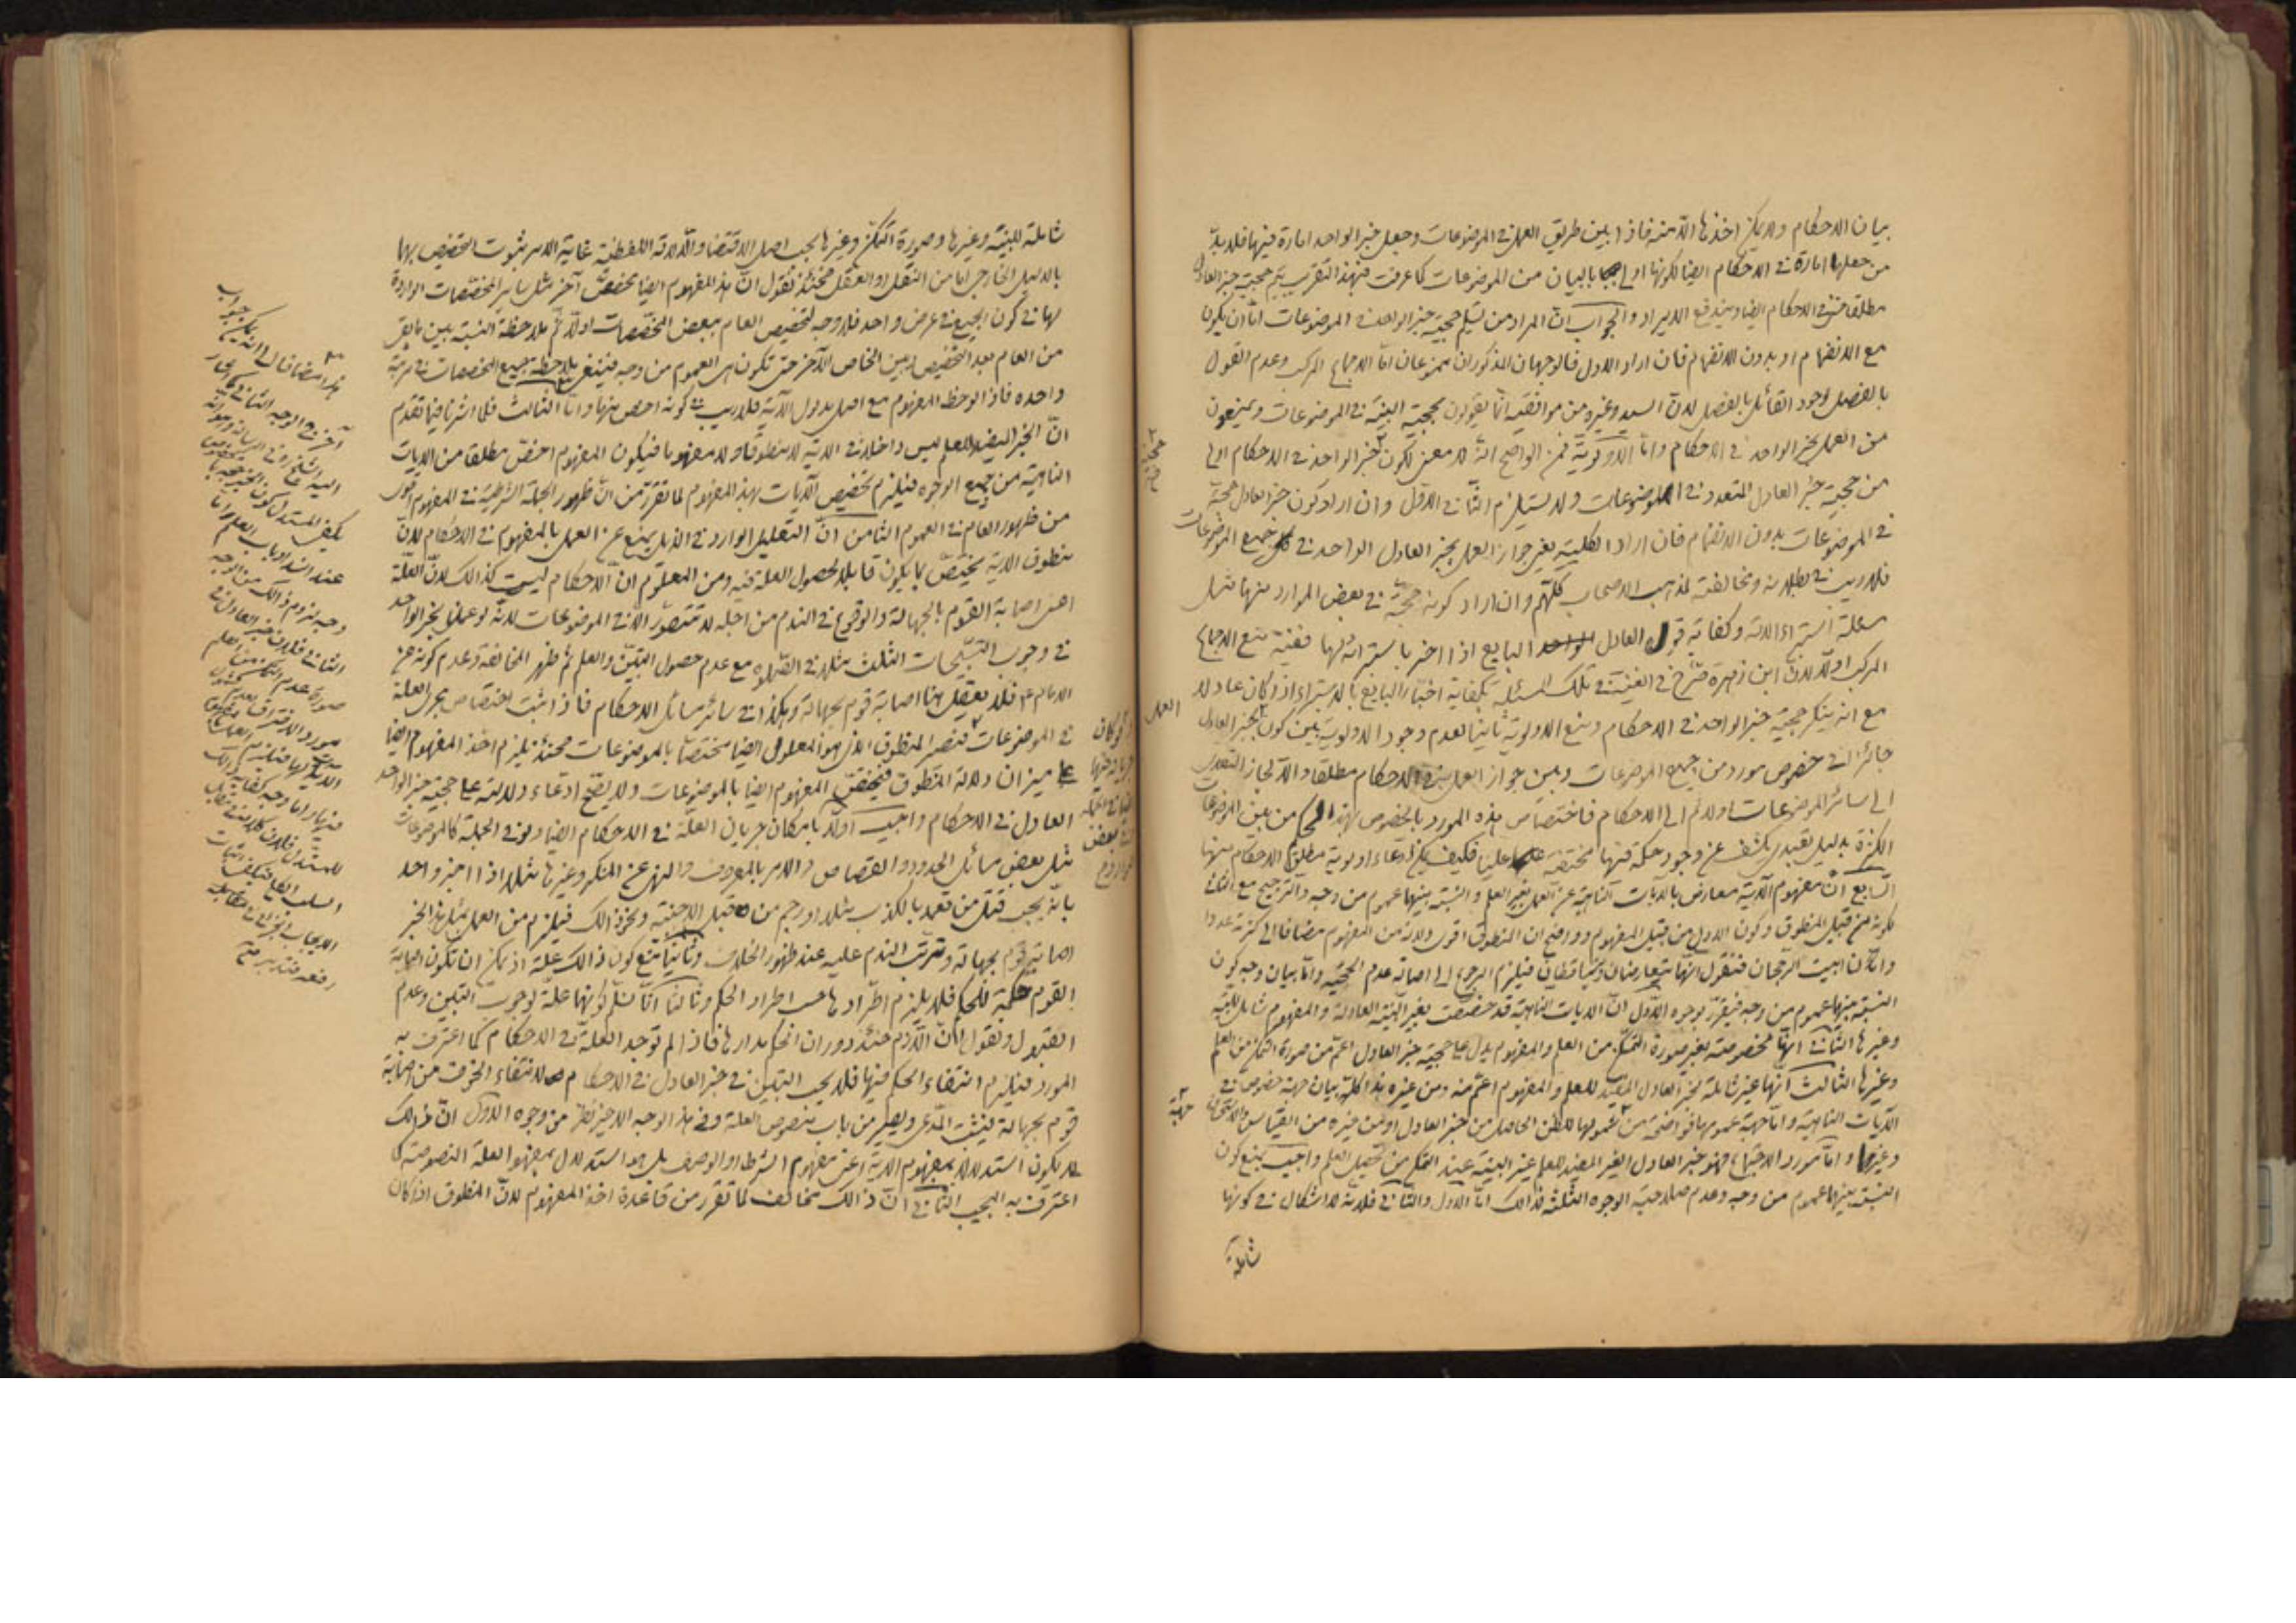 بيان الاحكام ولا يمكن اخذها الا منه فاذا بين طريق العمل في الموضوعات وجعل خبر الواحد امارة فيها فلا بد
من جعلها امارة في الاحكام ايضا لكونها اولى بالبيان من الموضوعات كما عرفت فبهذا التقريب يتم حجية خبر العادل
مطلقا حتى في الاحكام ايضا ويندفع الايراد والجواب ان المراد من تسليم حجية خبر الواحد في الموضوعات اما ان يكون
مع الانضمام او بدون الانضمام فان اراد الاول فالوجهان المذكوران ممنوعان اما الاجماع المركب وعدم القول
بالفصل لوجود القائل بالفصل لان السيد وغيره من موافقيه انما يقولون بحجية البينة في الموضوعات ويمنعون
من العمل بخبر الواحد في الاحكام واما الاولوية فمن الواضح انه لا معنى لكون خبر الواحد في الاحكام اولى
من حجية خبر العادل المتعدد في الموضوعات ولا يستلزم الثاني الاول وان اراد كون خبر العادل حجة
في الموضوعات بدون الانضمام فان اراد الكلية يعني جواز العمل بخبر العادل الواحد في جميع الموضوعات
فلا ريب في بطلانه ومخالفته لمذهب الاصحاب كلهم وان اراد كونه حجة في بعض الموارد منها مثل
مسئلة استبراء الامة وكفاية قول العادل البايع اذا اخبر باستبرائه لها ففيه منع الاجماع
المركب اولا لان ابن زهرة صرح في الغنية في تلك المسئلة بكفاية اخبار البايع بالاستبراء اذا كان عادلا
مع انه ينكر حجية خبر الواحد في الاحكام ومنع الاولوية ثانيا لعدم وجود الاولوية بين كون بخبر العادل
جائزا في خصوص مورد من الموضوعات وبين جواز العمل به في الاحكام مطلقا والا لجاز التعدي
الى سائر الموضوعات اولا ثم الى الاحكام فاختصاص هذه المورد بالخصوص بهذا الحكم من بين الموضوعات
الكثيرة بدليل تعبدي يكشف عن وجود حكمة فيها مختفية علينا فكيف يمكن ادعاء اولوية مطلق الاحكام منها
السابع ان مفهوم الآية معارض بالآيات الناهية عن العمل بغير العلم والنسبة بينهما عموم من وجه والترجيح مع الثاني
لكونه من قبيل المنطوق وكون الاول من قبيل المفهوم وواضح ان المنطوق اقوى دلالة من المفهوم مضافا الى كثرته عددا
وان ابيت الرجحان فنقول انهما يتعارضان ويتساقطان فيلزم الرجوع الى اصالة عدم الحجية واما بيان وجه كون
النسبة بينهما عموم من وجه فيتقرر بوجوه الاول ان الايات الناهية قد خصصت بغير البينة العادلة والمفهوم شامل للبينة
وغيرها الثاني انها مخصوصة بغير صورة التمكن من العلم والمفهوم يدل على حجية خبر العادل اعم من صورة التمكن من العلم
وغيرها الثالث انها غير شاملة لخبر العادل المفيد للعلم والمفهوم اعم منه ومن غيره هذا كله بيان جهة خصوص في
الآيات الناهية واما جهة عمومها فواضحة من شمولها للظن الحاصل من خبر العادل او من غيره من القياس والاستحسان
وغيرها واما مورد الاجتماع فهو خبر العادل الغير المفيد للعلم غير البينة عند التمكن من تحصيل العلم واجيب بمنع كون
النسبة بينهما عموم من وجه وعدم صلاحية الوجوه الثلثة لذالك اما الاول والثاني فلانه لا اشكال في كونها
شاملة
حجية
العمل
جهة
شاملة للبينة وغيرها وصورة التمكن وغيرها بحسب اصل الاقتضاء والدلالة اللفظية غاية الامر ثبوت التخصيص بهما
بالدليل الخارجي اما من النقل او العقل فحينئذ نقول ان هذا المفهوم ايضا مخصص آخر مثل ساير المخصصات الواردة
لها في كون الجميع في عرض واحد فلا وجه لتخصيص العام ببعض المخصصات اولا ثم ملاحظة النسبة بين ما بقي
من العام بعد التخصيص وبين الخاص الآخر حتى تكون هي العموم من وجه فينبغي ملاحظة جميع المخصصات في مرتبة
واحده فاذا لوحظ المفهوم مع اصل مدلول الآية فلا ريب في كونه اخص منها واما الثالث فلما اشرنا فيما تقدم
ان الخبر المفيد للعلم ليس داخلا في الاية لا منطوقا ولا مفهوما فيكون المفهوم اخص مطلقا من الايات
الناهية من جميع الوجوه فيلزم تخصيص الآيات بهذا المفهوم لما تقرر من ان ظهور الجملة الشرطية في المفهوم اقوى
من ظهور العام في العموم الثامن ان التعليل الوارد في الذيل يمنع عن العمل بالمفهوم في الاحكام لان
منطوق الاية يختص بما يكون قابلا لحصول العلة فيه ومن المعلوم ان الاحكام ليست كذالك لان العلة
اعني اصابة القوم بالجهالة والوقوع في الندم من اجله لا تتصور الا في الموضوعات لانه لو عمل بخبر الواحد
في وجوب التسبيحات الثلث مثلا في الصلوة مع عدم حصول التبين والعلم ثم ظهر المخالفة وعدم كونه من
الامام ع فلا يعقل هنا اصابة قوم بجهالة وهكذا في سائر مسائل الاحكام فاذا ثبت اختصاص مجرى العلة
في الموضوعات فيصير المنطوق الذي هو المعلول ايضا مختصا بالموضوعات فحينئذ يلزم اخذ المفهوم ايضا
على ميزان دلالة المنطوق فيختص المفهوم ايضا بالموضوعات ولا يصح ادعاء دلالته على حجية خبر الواحد
العادل في الاحكام واجيب اولا بامكان جريان العلة في الاحكام ايضا ولو في الجملة كالموضوعات
مثل بعض مسائل الحدود والقصاص والامر بالمعروف والنهي عن المنكر وغيرها مثلا اذا اخبر واحد
بانه يجب قتل من تعمد بالكذب مثلا او رجم من قبل الاجنبية ونحو ذالك فيلزم من العمل بمثل هذا الخبر
اصابة قوم بجهالة وترتب الندم عليه عند ظهور الخلاف وثانيا بمنع كون ذالك علة اذ يمكن ان تكون اصابة
القوم حكمة للحكم فلا يلزم اطرادها حسب اطراد الحكم وثالثا انا نسلم كونها علة لوجوب التبين وعدم
القبول ونقول ان اللازم حينئذ دوران الحكم مدارها فاذا لم توجد العلة في الاحكام كما اعترف به
المورد فيلزم انتفاء الحكم فيها فلا يجب التبين في خبر العادل في الاحكام لانتفاء الخوف من اصابة
قوم بجهالة فيثبت المدعى ويصير من باب منصوص العلة وفي هذا الوجه الاخير نظر من وجوه الاول ان ذالك
لا يكون استدلالا بمفهوم الاية اعني مفهوم الشرط او الوصف بل هو استدلال بمفهوم العلة المنصوصة كما
اعترف به المجيب الثاني ان ذالك مخالف لما تقرر من قاعدة اخذ المفهوم لان المنطوق اذا كان